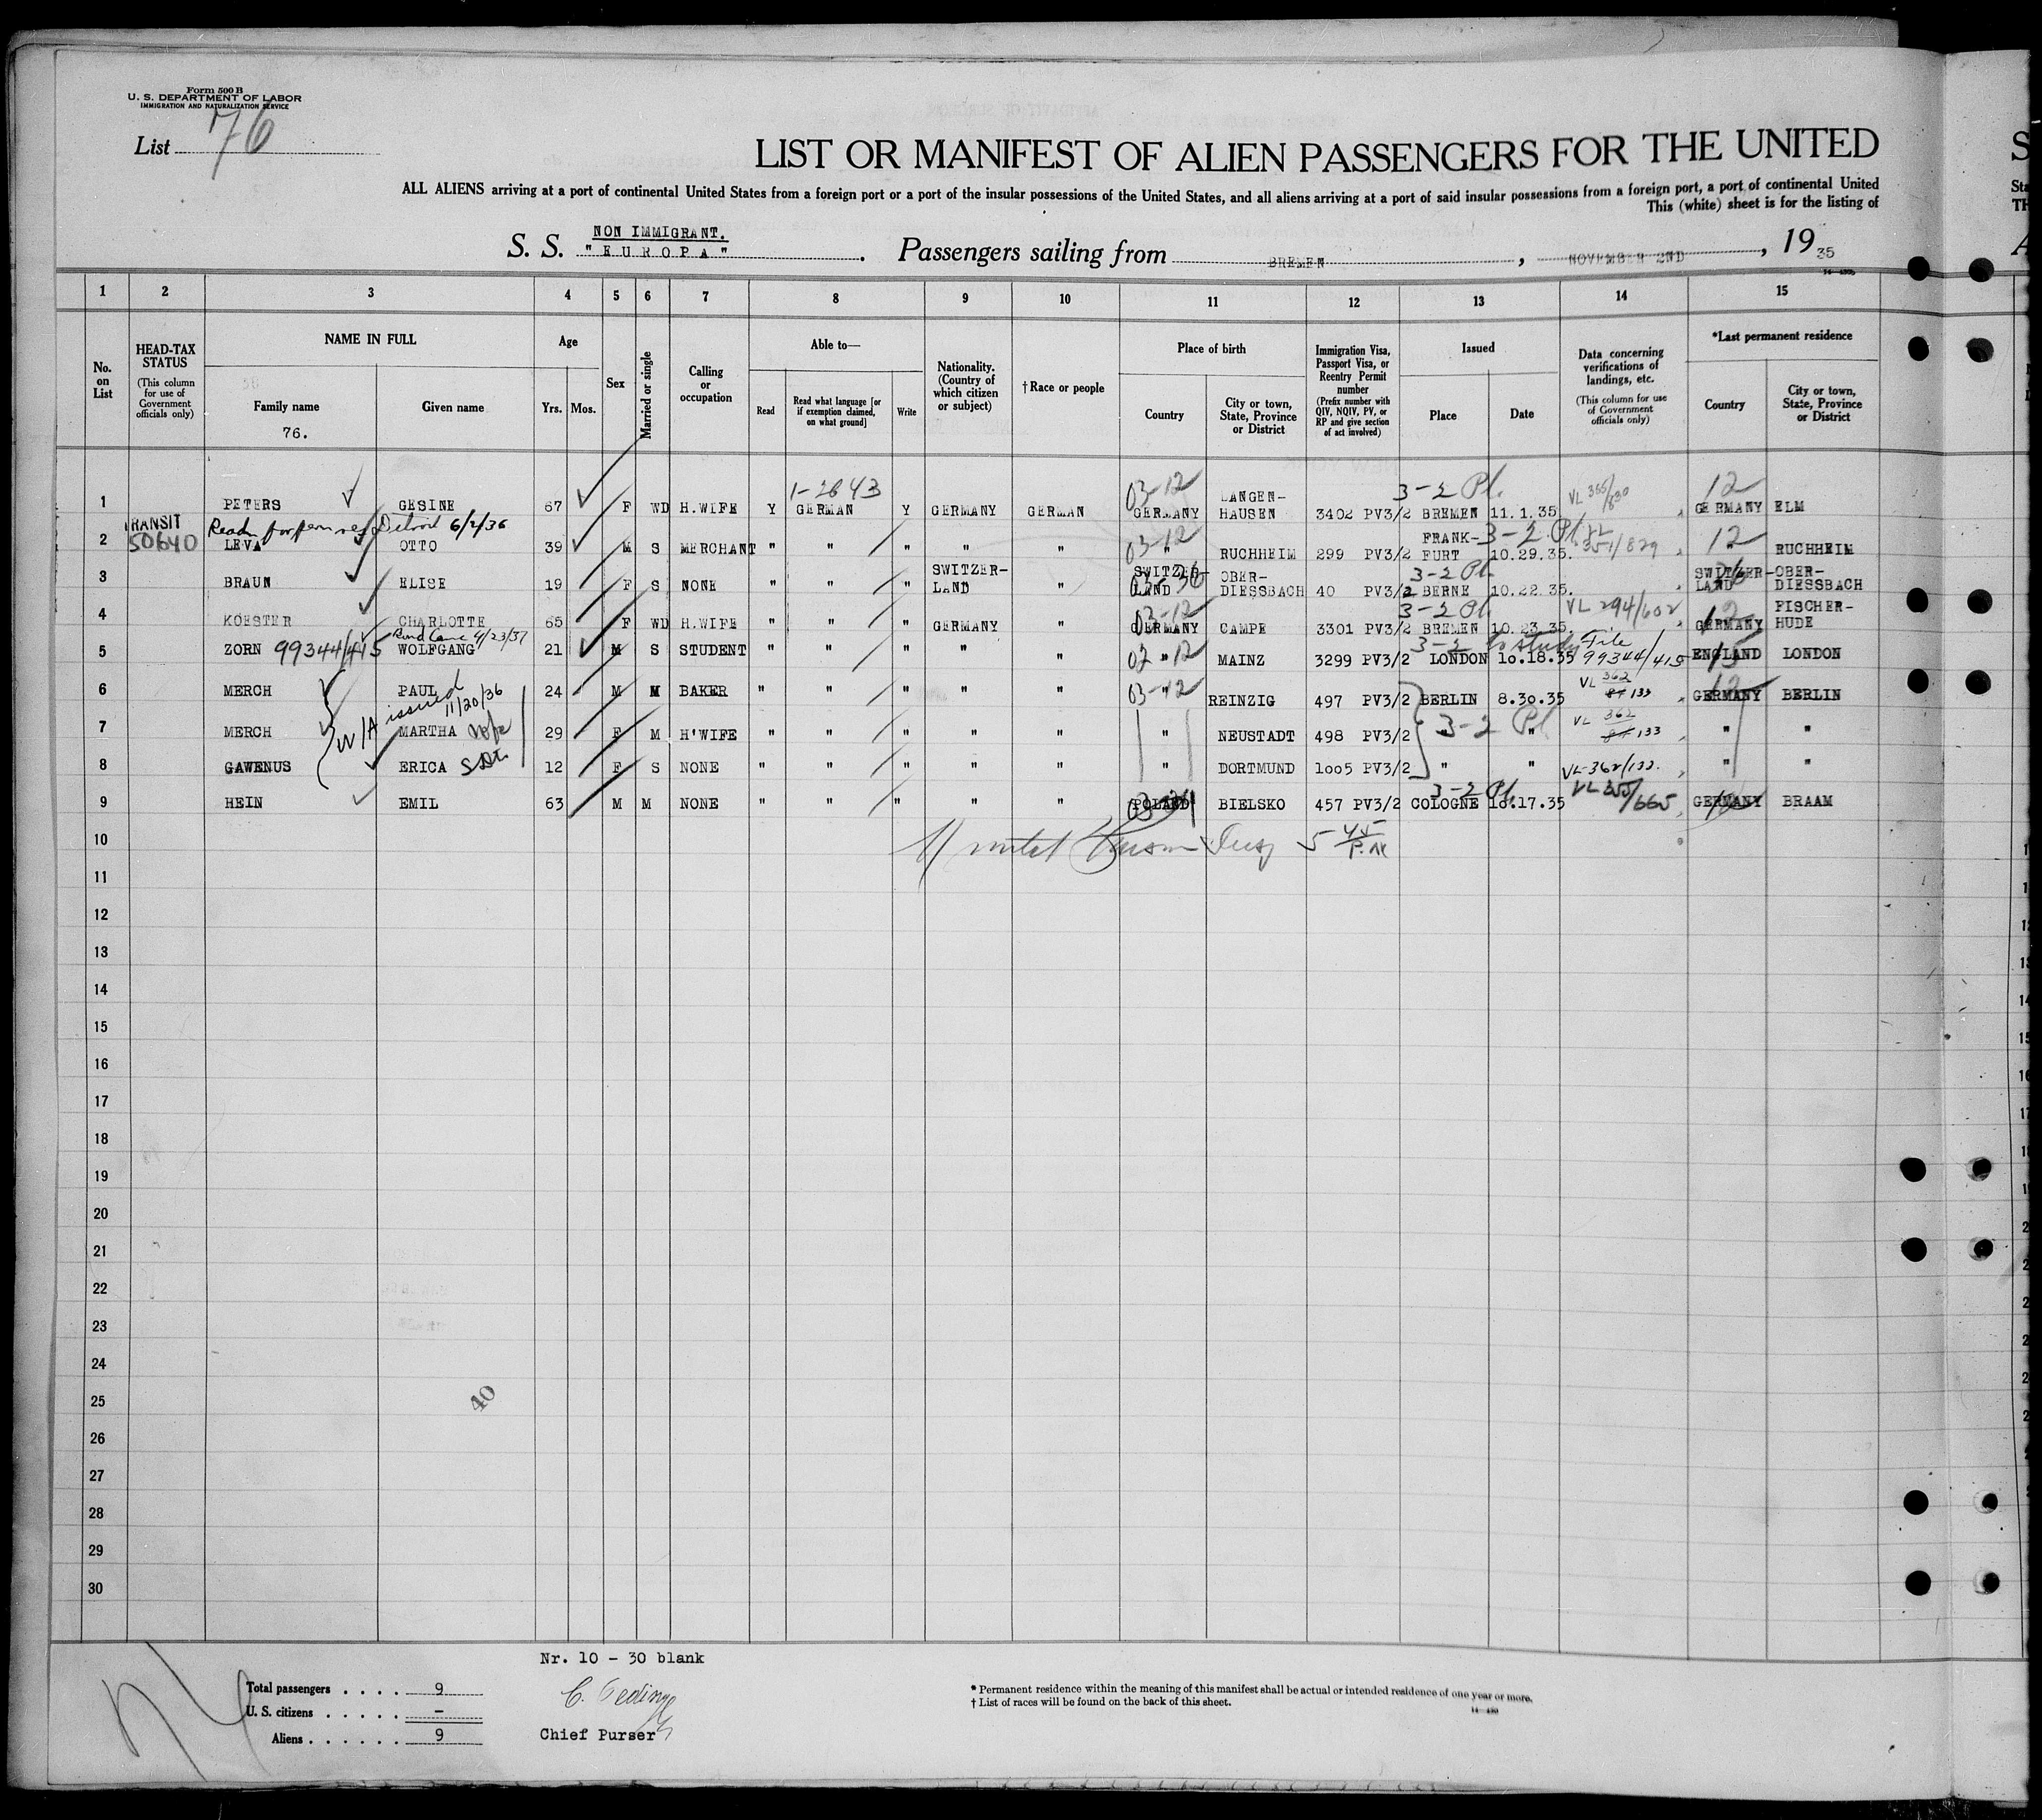 Form 500 B
U. S. DEPARTMENT OF LABOR
IMMIGRATION AND NATURALIZATION SERVICE
List 76
LIST OR MANIFEST OF ALIEN PASSENGERS FOR THE UNITED
ALL ALIENS arriving at a port of continental United States from a foreign port or a port of the insular possessions of the United States, and all aliens arriving at a port of said insular possessions from a foreign port, a port of continental United
This (white) sheet is for the listing of
NON IMMIGRANT.
S. S. "EUROPA". Passengers sailing from BREMEN, NOVEMBER 2ND, 1935
1 2 3 4 5 6 7 8 9 10 11 12 13 14 15
No. on List
HEAD-TAX STATUS (This column for use of Government officials only)
NAME IN FULL
Family name
76.
Given name
Age
Yrs. Mos.
Sex
Married or single
Calling or occupation
Able to—
Read
Read what language [or if exemption claimed, on what ground]
Write
Nationality. (Country of which citizen or subject)
†Race or people
Place of birth
Country
City or town, State, Province or District
Immigration Visa, Passport Visa, or Reentry Permit number (Prefix number with QIV, NQIV, PV, or RP and give section of act involved)
Issued
Place
Date
Data concerning verifications of landings, etc. (This column for use of Government officials only)
*Last permanent residence
Country
City or town, State, Province or District
1-2643 03-12 3-2 Pl. 12
1 PETERS GESINE 67 F WD H.WIFE Y GERMAN Y GERMANY GERMAN GERMANY LANGEN-HAUSEN 3402 PV3/2 BREMEN 11.1.35 GERMANY ELM
Detroit 6/2/36
TRANSIT 50640
2 LEVA OTTO 39 M S MERCHANT " " " " " 03-12 " RUCHHEIM 299 PV3/2 FRANK-FURT 3-2 Pl. 10.29.35. 12 " RUCHHEIM
3 BRAUN ELISE 19 F S NONE " " " SWITZER-LAND " SWITZER-LAND OBER-DIESSBACH 40 PV3/2 3-2 Pl. BERNE 10.22.35. SWITZER-LAND OBER-DIESSBACH
4 KOESTER CHARLOTTE 65 F WD H.WIFE " " " GERMANY " 03-12 GERMANY CAMPE 3301 PV3/2 3-2 Pl. BREMEN 10.23.35. VL 294/602 12 GERMANY FISCHER-HUDE
5 ZORN 99344/415 WOLFGANG 4/23/37 21 M S STUDENT " " " " " " MAINZ 3299 PV3/2 3-2 to study LONDON 10.18.35 File 99344/415 ENGLAND LONDON
6 MERCH PAUL 24 M M BAKER " " " " " 03-12 " REINZIG 497 PV3/2 BERLIN 8.30.35 VL 362 133 12 GERMANY BERLIN
W/A issued 11/20/36
7 MERCH MARTHA wife 29 F M H'WIFE " " " " " " NEUSTADT 498 PV3/2 3-2 Pl " " VL 362 133 " "
8 GAWENUS ERICA 12 F S NONE " " " " " " DORTMUND 1005 PV3/2 " " VL 362/133. " "
9 HEIN EMIL 63 M M NONE " " " " " POLAND BIELSKO 457 PV3/2 3-2 Pl. COLOGNE 10.17.35 VL 355/665 GERMANY BRAAM
10 5 45 P.M
11
12
13
14
15
16
17
18
19
20
21
22
23
24
25
40
26
27
28
29
30
Nr. 10 - 30 blank
Total passengers . . . . 9
U. S. citizens . . . . . -
Aliens . . . . . . 9
Chief Purser
* Permanent residence within the meaning of this manifest shall be actual or intended residence of one year or more.
† List of races will be found on the back of this sheet.